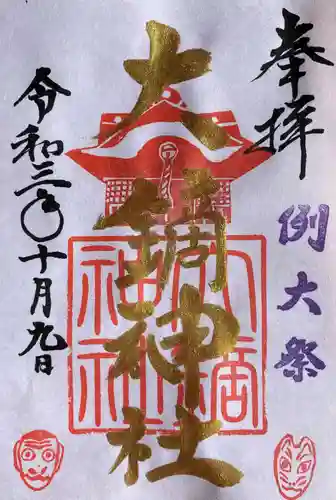 奉拝
例大祭
大鏑神社
令和三年十月九日